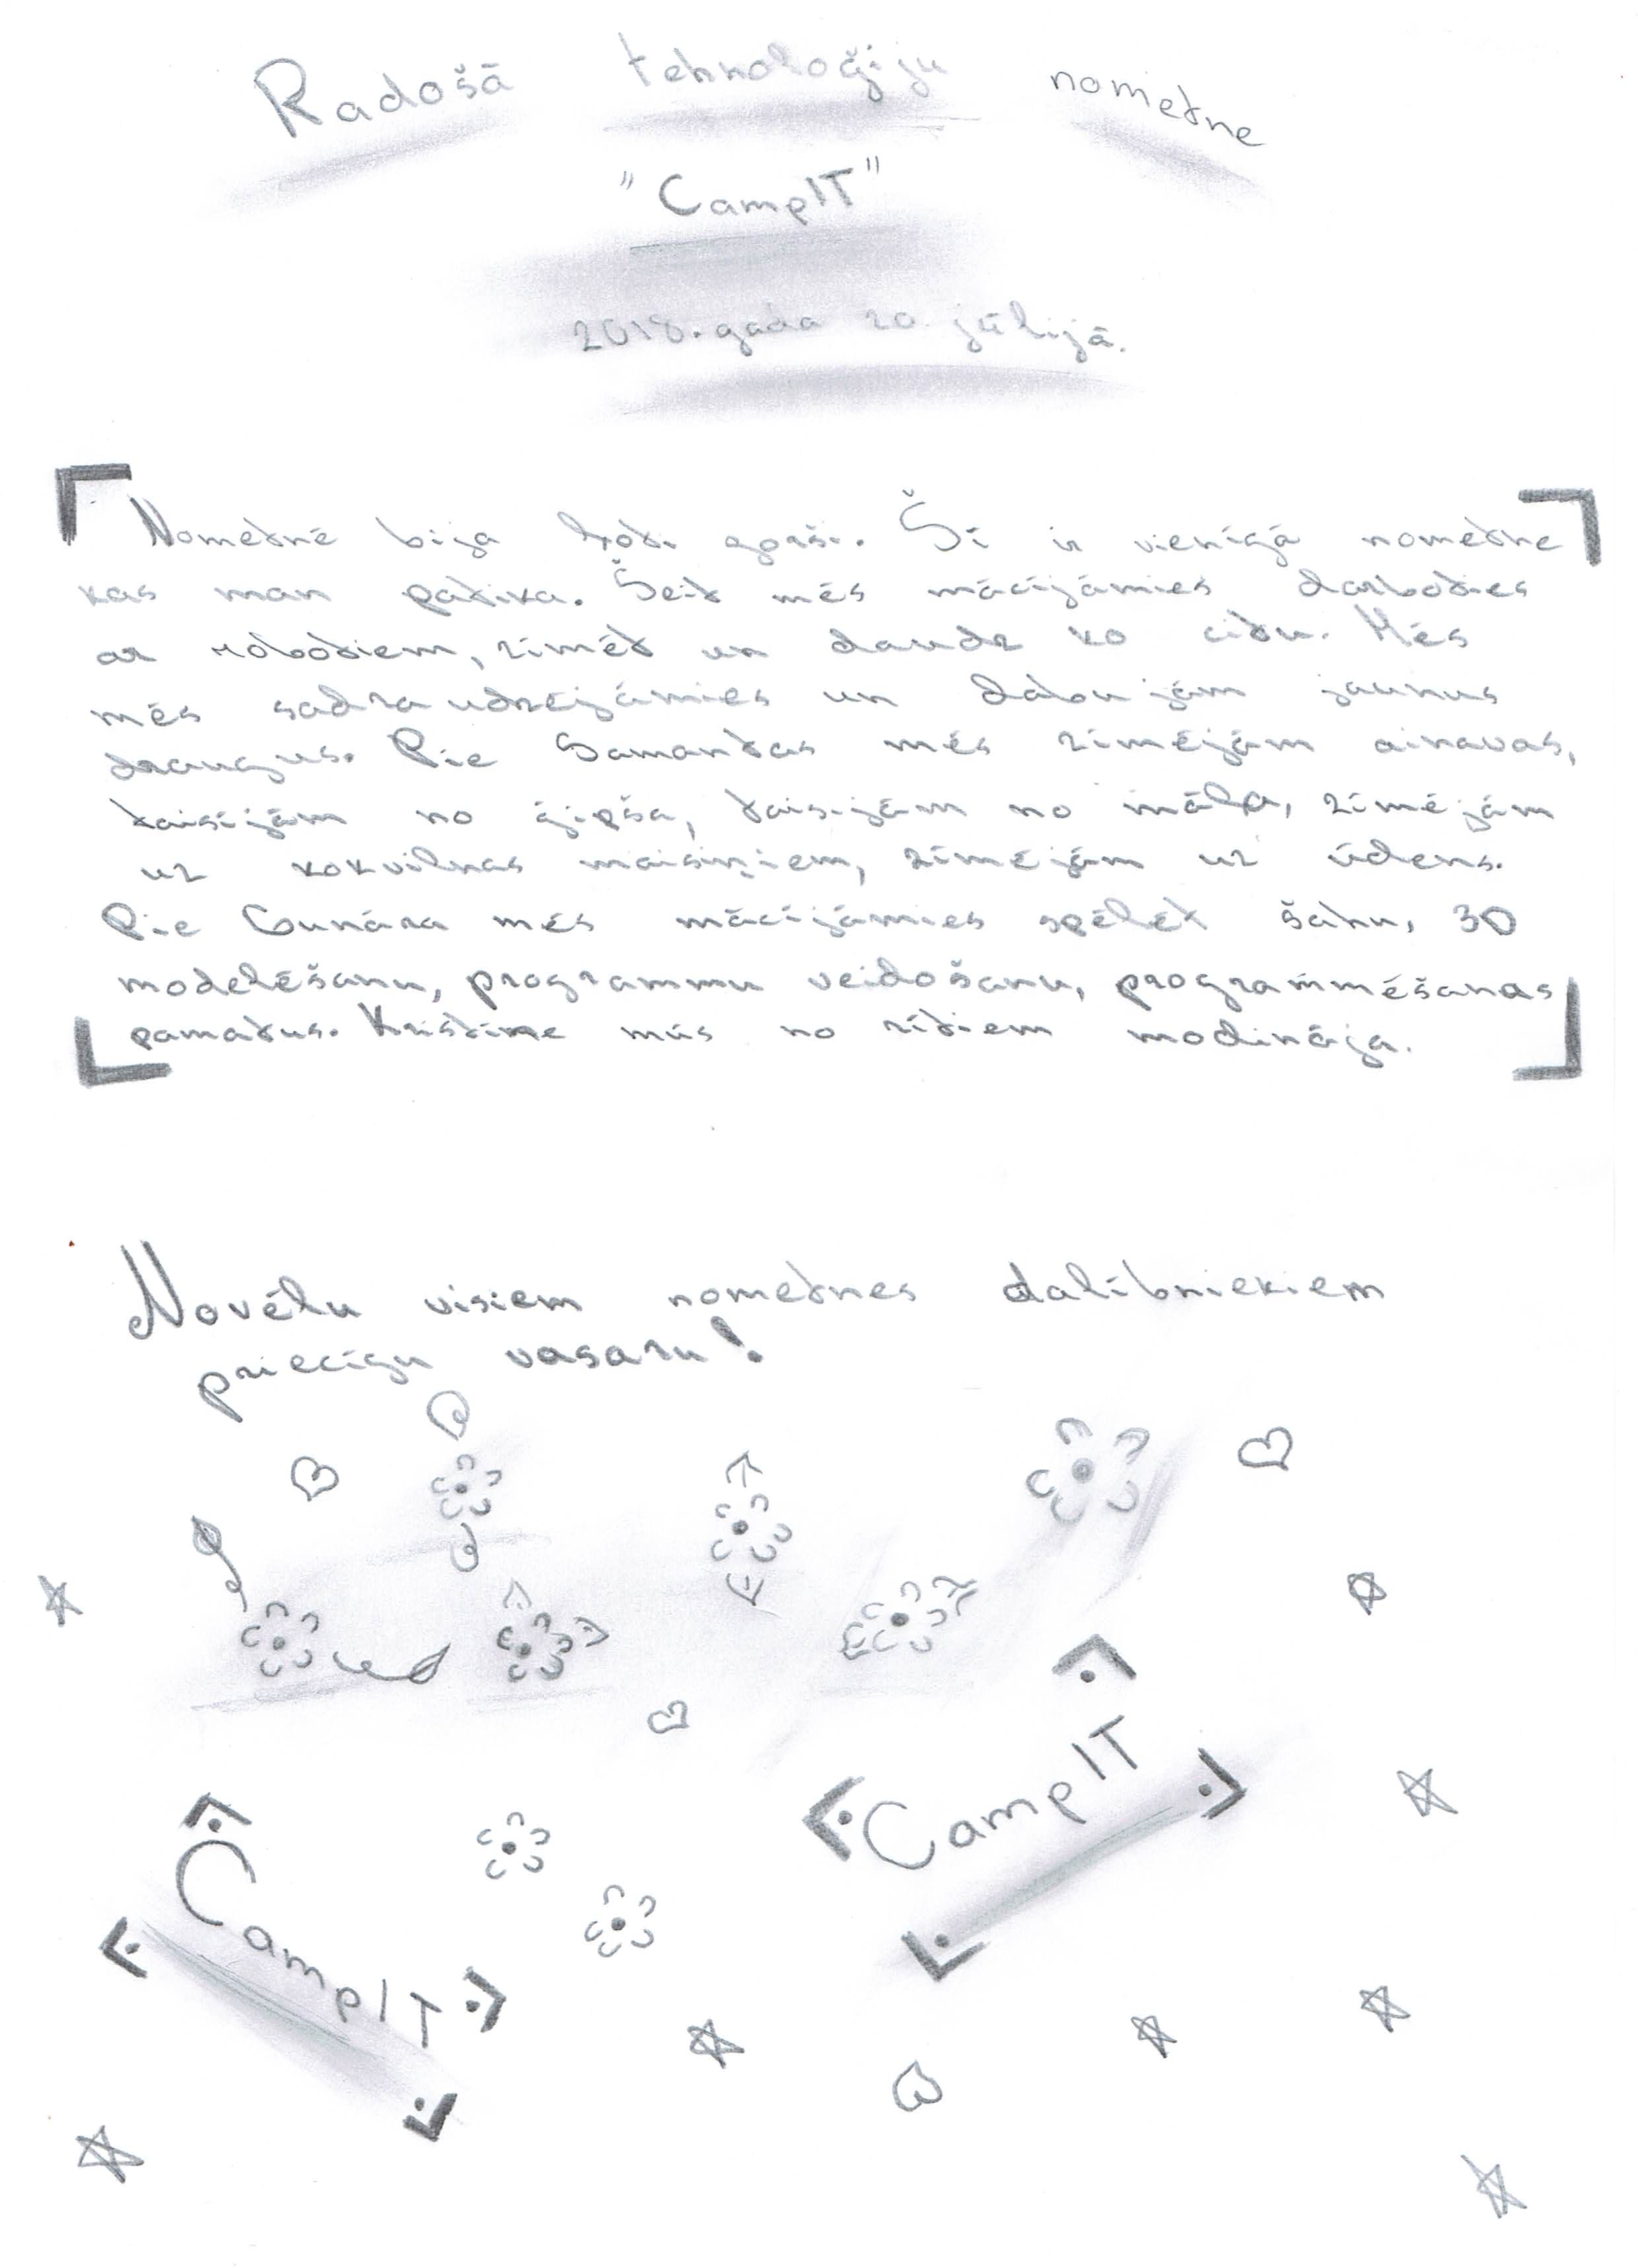 Radošā tehnoloģiju nometne
"CampIT"
2018. gada 20. jūlijā.
Nometnē bija ļoti forši. Šī ir vienīgā nometne
kas man patika. Šeit mēs mācījāmies darboties
ar robotiem, zīmēt un daudz ko citu. Mēs
mēs sadraudzējāmies un dabujām jaunus
draugus. Pie Samantas mēs zīmējām ainavas,
taisījām no ģipša, taisijām no māla, zīmējām
uz kokvilnas maisiņiem, zīmējām uz ūdens.
Pie Gunāra mēs mācījāmies spēlēt šahu, 3D
modelēšanu, programmu veidošanu, programmēšanas
pamatus. Kristīne mūs no rītiem modināja.
Novēlu visiem nometnes dalībniekiem
priecīgu vasaru!
CampIT
CampIT